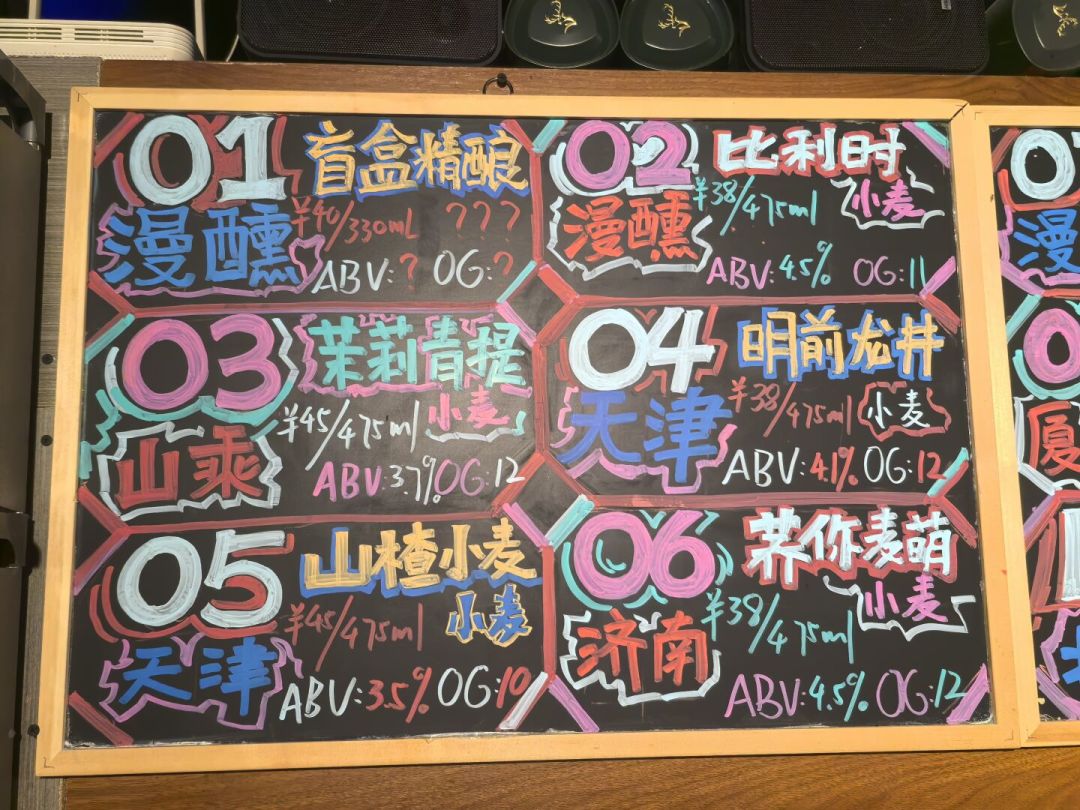 01 盲盒精酿
漫醺 ¥40/330mL ???
ABV:? OG:?
02 比利时
漫醺 ¥38/475ml 小麦
ABV:4.5% OG:11
03 茉莉青提
山乘 ¥45/475ml 小麦
ABV:3.7% OG:12
04 明前龙井
天津 ¥38/475ml 小麦
ABV:4.1% OG:12
05 山楂小麦
天津 ¥45/475ml 小麦
ABV:3.5% OG:10
06 荞你麦萌
济南 ¥38/475ml 小麦
ABV:4.5% OG:12
漫
厦